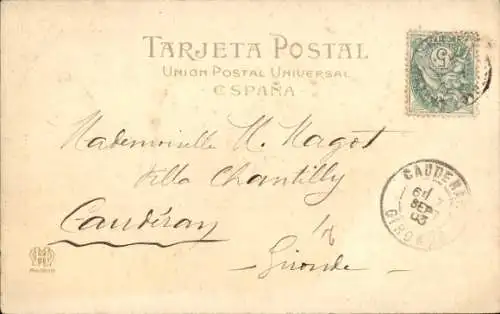 TARJETA POSTAL
UNION POSTAL UNIVERSAL
ESPAÑA
5
Mademoiselle H. Magot
Villa Chantilly
Caudéran
Gironde
CAUDERAN
SEPT
03
GIRONDE